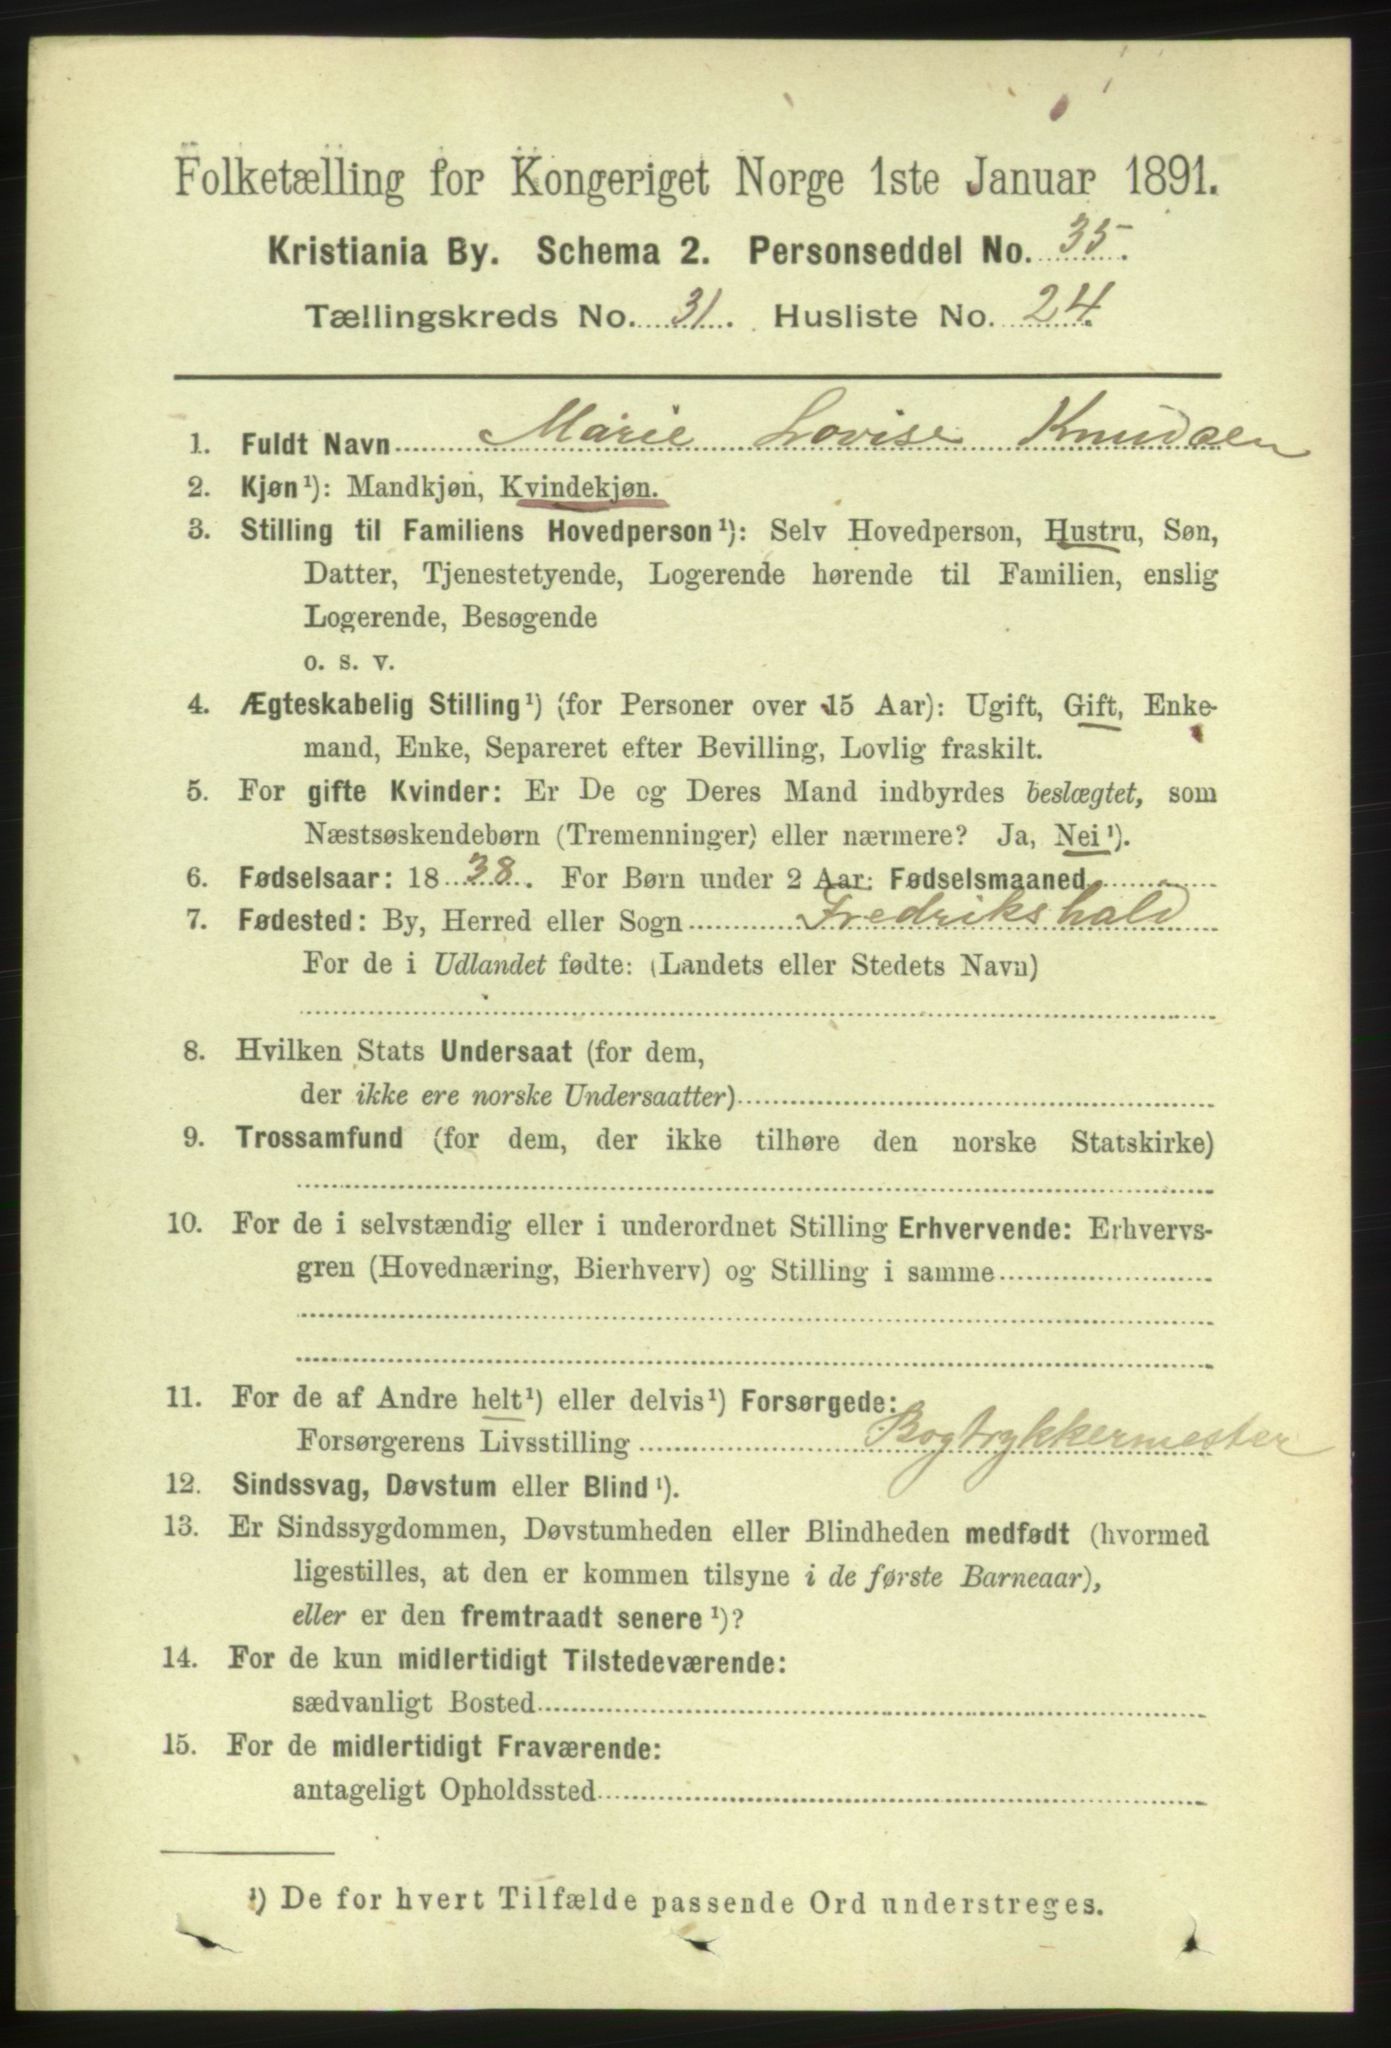 Folketælling for Kongeriget Norge 1ste Januar 1891.
Kristiania By. Schema 2. Personseddel No. 35.
Tællingskreds No. 31. Husliste No. 24.
1. Fuldt Navn Marie Lovise Knudsen
2. Kjøn¹): Mandkjøn, Kvindekjøn.
3. Stilling til Familiens Hovedperson¹): Selv Hovedperson, Hustru, Søn,
Datter, Tjenestetyende, Logerende hørende til Familien, enslig
Logerende, Besøgende
o. s. v.
4. Ægteskabelig Stilling¹) (for Personer over 15 Aar): Ugift, Gift, Enke-
mand, Enke, Separeret efter Bevilling, Lovlig fraskilt.
5. For gifte Kvinder: Er De og Deres Mand indbyrdes beslægtet, som
Næstsøskendebørn (Tremenninger) eller nærmere? Ja, Nei¹).
6. Fødselsaar: 1838. For Børn under 2 Aar: Fødselsmaaned
7. Fødested: By, Herred eller Sogn Fredrikshald
For de i Udlandet fødte: (Landets eller Stedets Navn)
8. Hvilken Stats Undersaat (for dem,
der ikke ere norske Undersaatter)
9. Trossamfund (for dem, der ikke tilhøre den norske Statskirke)
10. For de i selvstændig eller i underordnet Stilling Erhvervende: Erhvervs-
gren (Hovednæring, Bierhverv) og Stilling i samme
11. For de af Andre helt¹) eller delvis¹) Forsørgede:
Forsørgerens Livsstilling Bogtrykkermester
12. Sindssvag, Døvstum eller Blind¹).
13. Er Sindssygdommen, Døvstumheden eller Blindheden medfødt (hvormed
ligestilles, at den er kommen tilsyne i de første Barneaar),
eller er den fremtraadt senere¹)?
14. For de kun midlertidigt Tilstedeværende:
sædvanligt Bosted
15. For de midlertidigt Fraværende:
antageligt Opholdssted
¹) De for hvert Tilfælde passende Ord understreges.